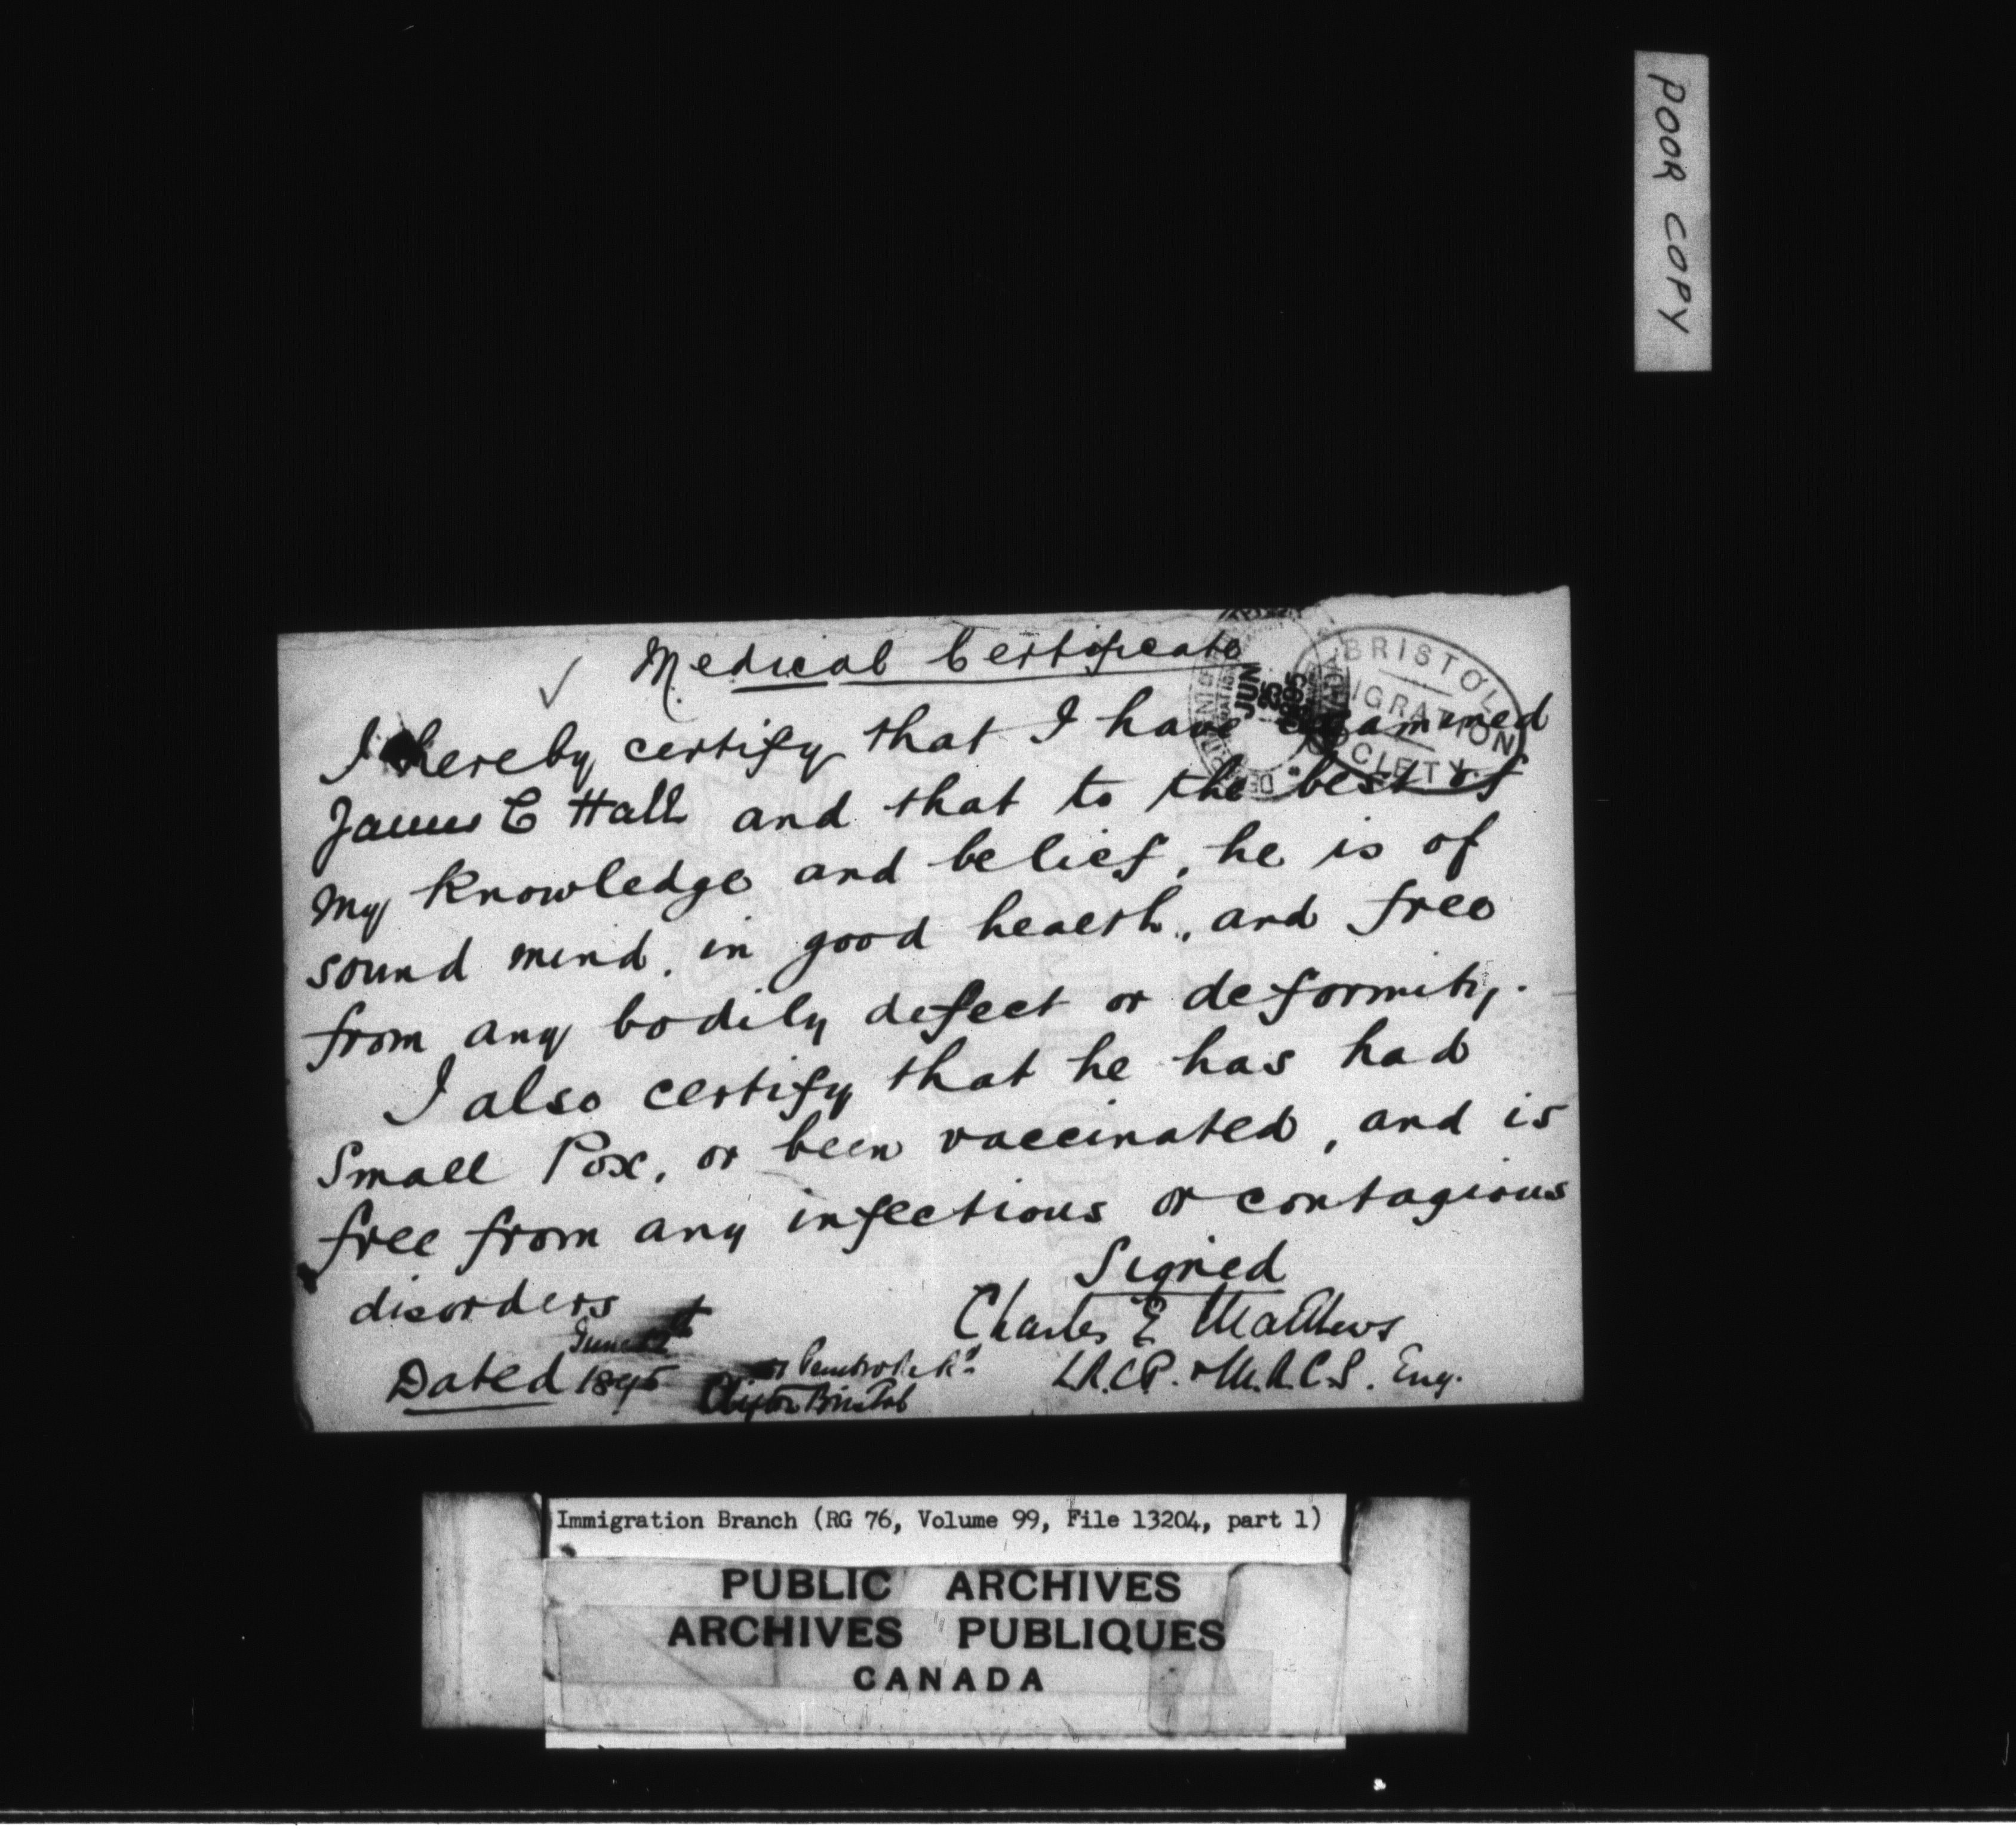 POOR COPY
Medical Certificate
BRISTOL
EMIGRATION
SOCIETY.
JUN
25
1895
I hereby certify that I have examined
James C Hall and that to the best of
my knowledge and belief, he is of
sound mind, in good health, and free
from any bodily defect or deformity.
I also certify that he has had
Small Pox, or been vaccinated, and is
free from any infectious or contagious
disorders
Signed
Charles E Matthews
L.R.C.P. & M.R.C.S. Eng.
Dated June 1895
Pembroke Rd
Clifton Bristol
Immigration Branch (RG 76, Volume 99, File 13204, part 1)
PUBLIC ARCHIVES
ARCHIVES PUBLIQUES
CANADA